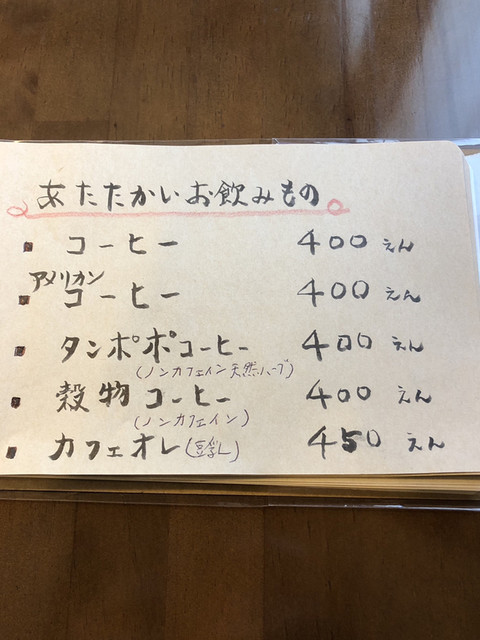 あたたかいお飲みもの
コーヒー 400えん
アメリカン
コーヒー 400えん
タンポポコーヒー 400えん
(ノンカフェイン天然ハーブ)
穀物コーヒー 400えん
(ノンカフェイン)
カフェオレ(豆乳) 450えん